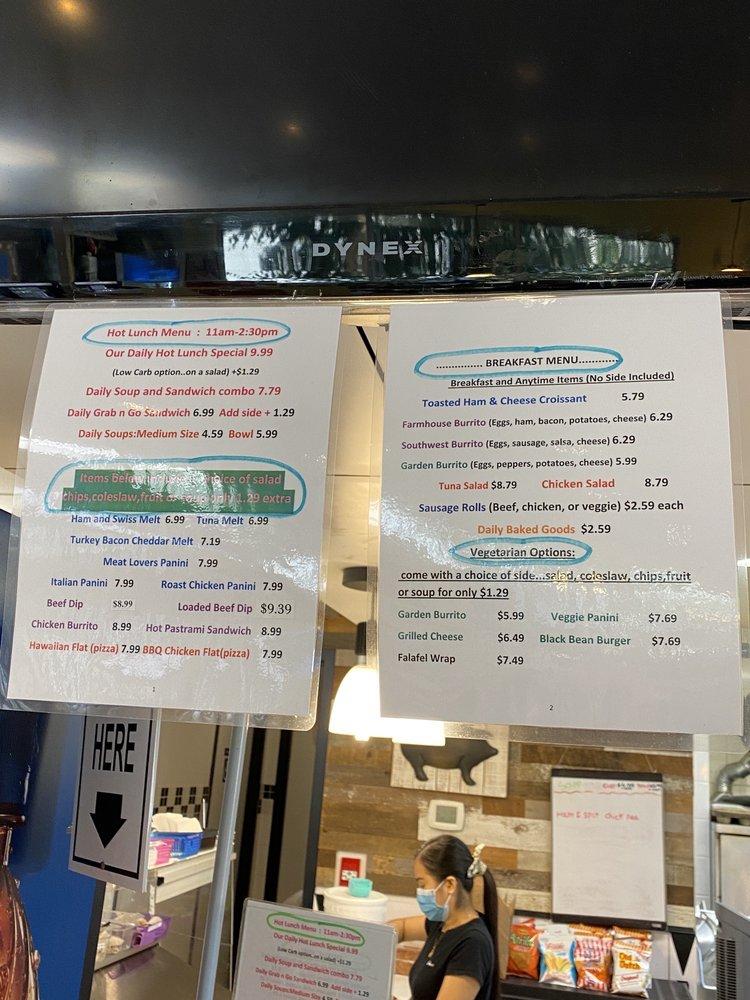 DYNEX
Hot Lunch Menu : 11am-2:30pm
Our Daily Hot Lunch Special 9.99
(Low Carb option..on a salad) +$1.29
Daily Soup and Sandwich combo 7.79
Daily Grab n Go Sandwich 6.99 Add side + 1.29
Daily Soups:Medium Size 4.59 Bowl 5.99
Items below include choice of salad
chips,coleslaw,fruit or soup only 1.29 extra
Ham and Swiss Melt 6.99 Tuna Melt 6.99
Turkey Bacon Cheddar Melt 7.19
Meat Lovers Panini 7.99
Italian Panini 7.99 Roast Chicken Panini 7.99
Beef Dip $8.99 Loaded Beef Dip $9.39
Chicken Burrito 8.99 Hot Pastrami Sandwich 8.99
Hawaiian Flat (pizza) 7.99 BBQ Chicken Flat(pizza) 7.99
1
............... BREAKFAST MENU............
Breakfast and Anytime Items (No Side Included)
Toasted Ham & Cheese Croissant 5.79
Farmhouse Burrito (Eggs, ham, bacon, potatoes, cheese) 6.29
Southwest Burrito (Eggs, sausage, salsa, cheese) 6.29
Garden Burrito (Eggs, peppers, potatoes, cheese) 5.99
Tuna Salad $8.79 Chicken Salad 8.79
Sausage Rolls (Beef, chicken, or veggie) $2.59 each
Daily Baked Goods $2.59
Vegetarian Options:
come with a choice of side...salad, coleslaw, chips,fruit
or soup for only $1.29
Garden Burrito $5.99 Veggie Panini $7.69
Grilled Cheese $6.49 Black Bean Burger $7.69
Falafel Wrap $7.49
2
HERE
Ham & Split chick pea
Old Dutch
Hot Lunch Menu : 11am-2:30pm
Our Daily Hot Lunch Special 9.99
(Low Carb option..on a salad) +$1.29
Daily Soup and Sandwich combo 7.79
Daily Grab n Go Sandwich 6.99 Add side + 1.29
Daily Soups:Medium Size 4.59